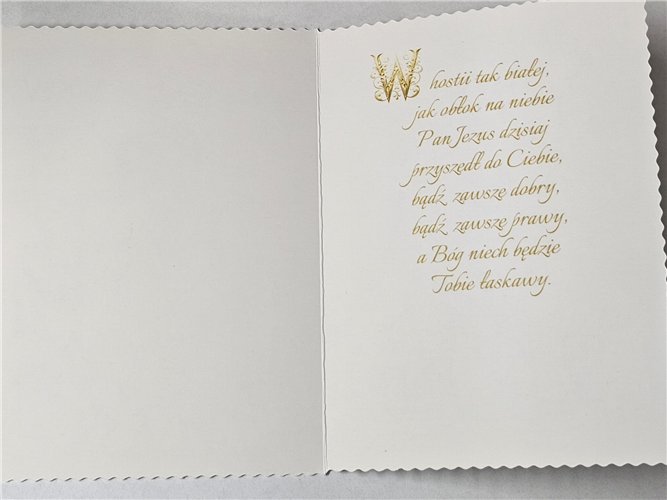 W hostii tak białej,
jak obłok na niebie
Pan Jezus dzisiaj
przyszedł do Ciebie,
bądź zawsze dobry,
bądź zawsze prawy,
a Bóg niech będzie
Tobie łaskawy.